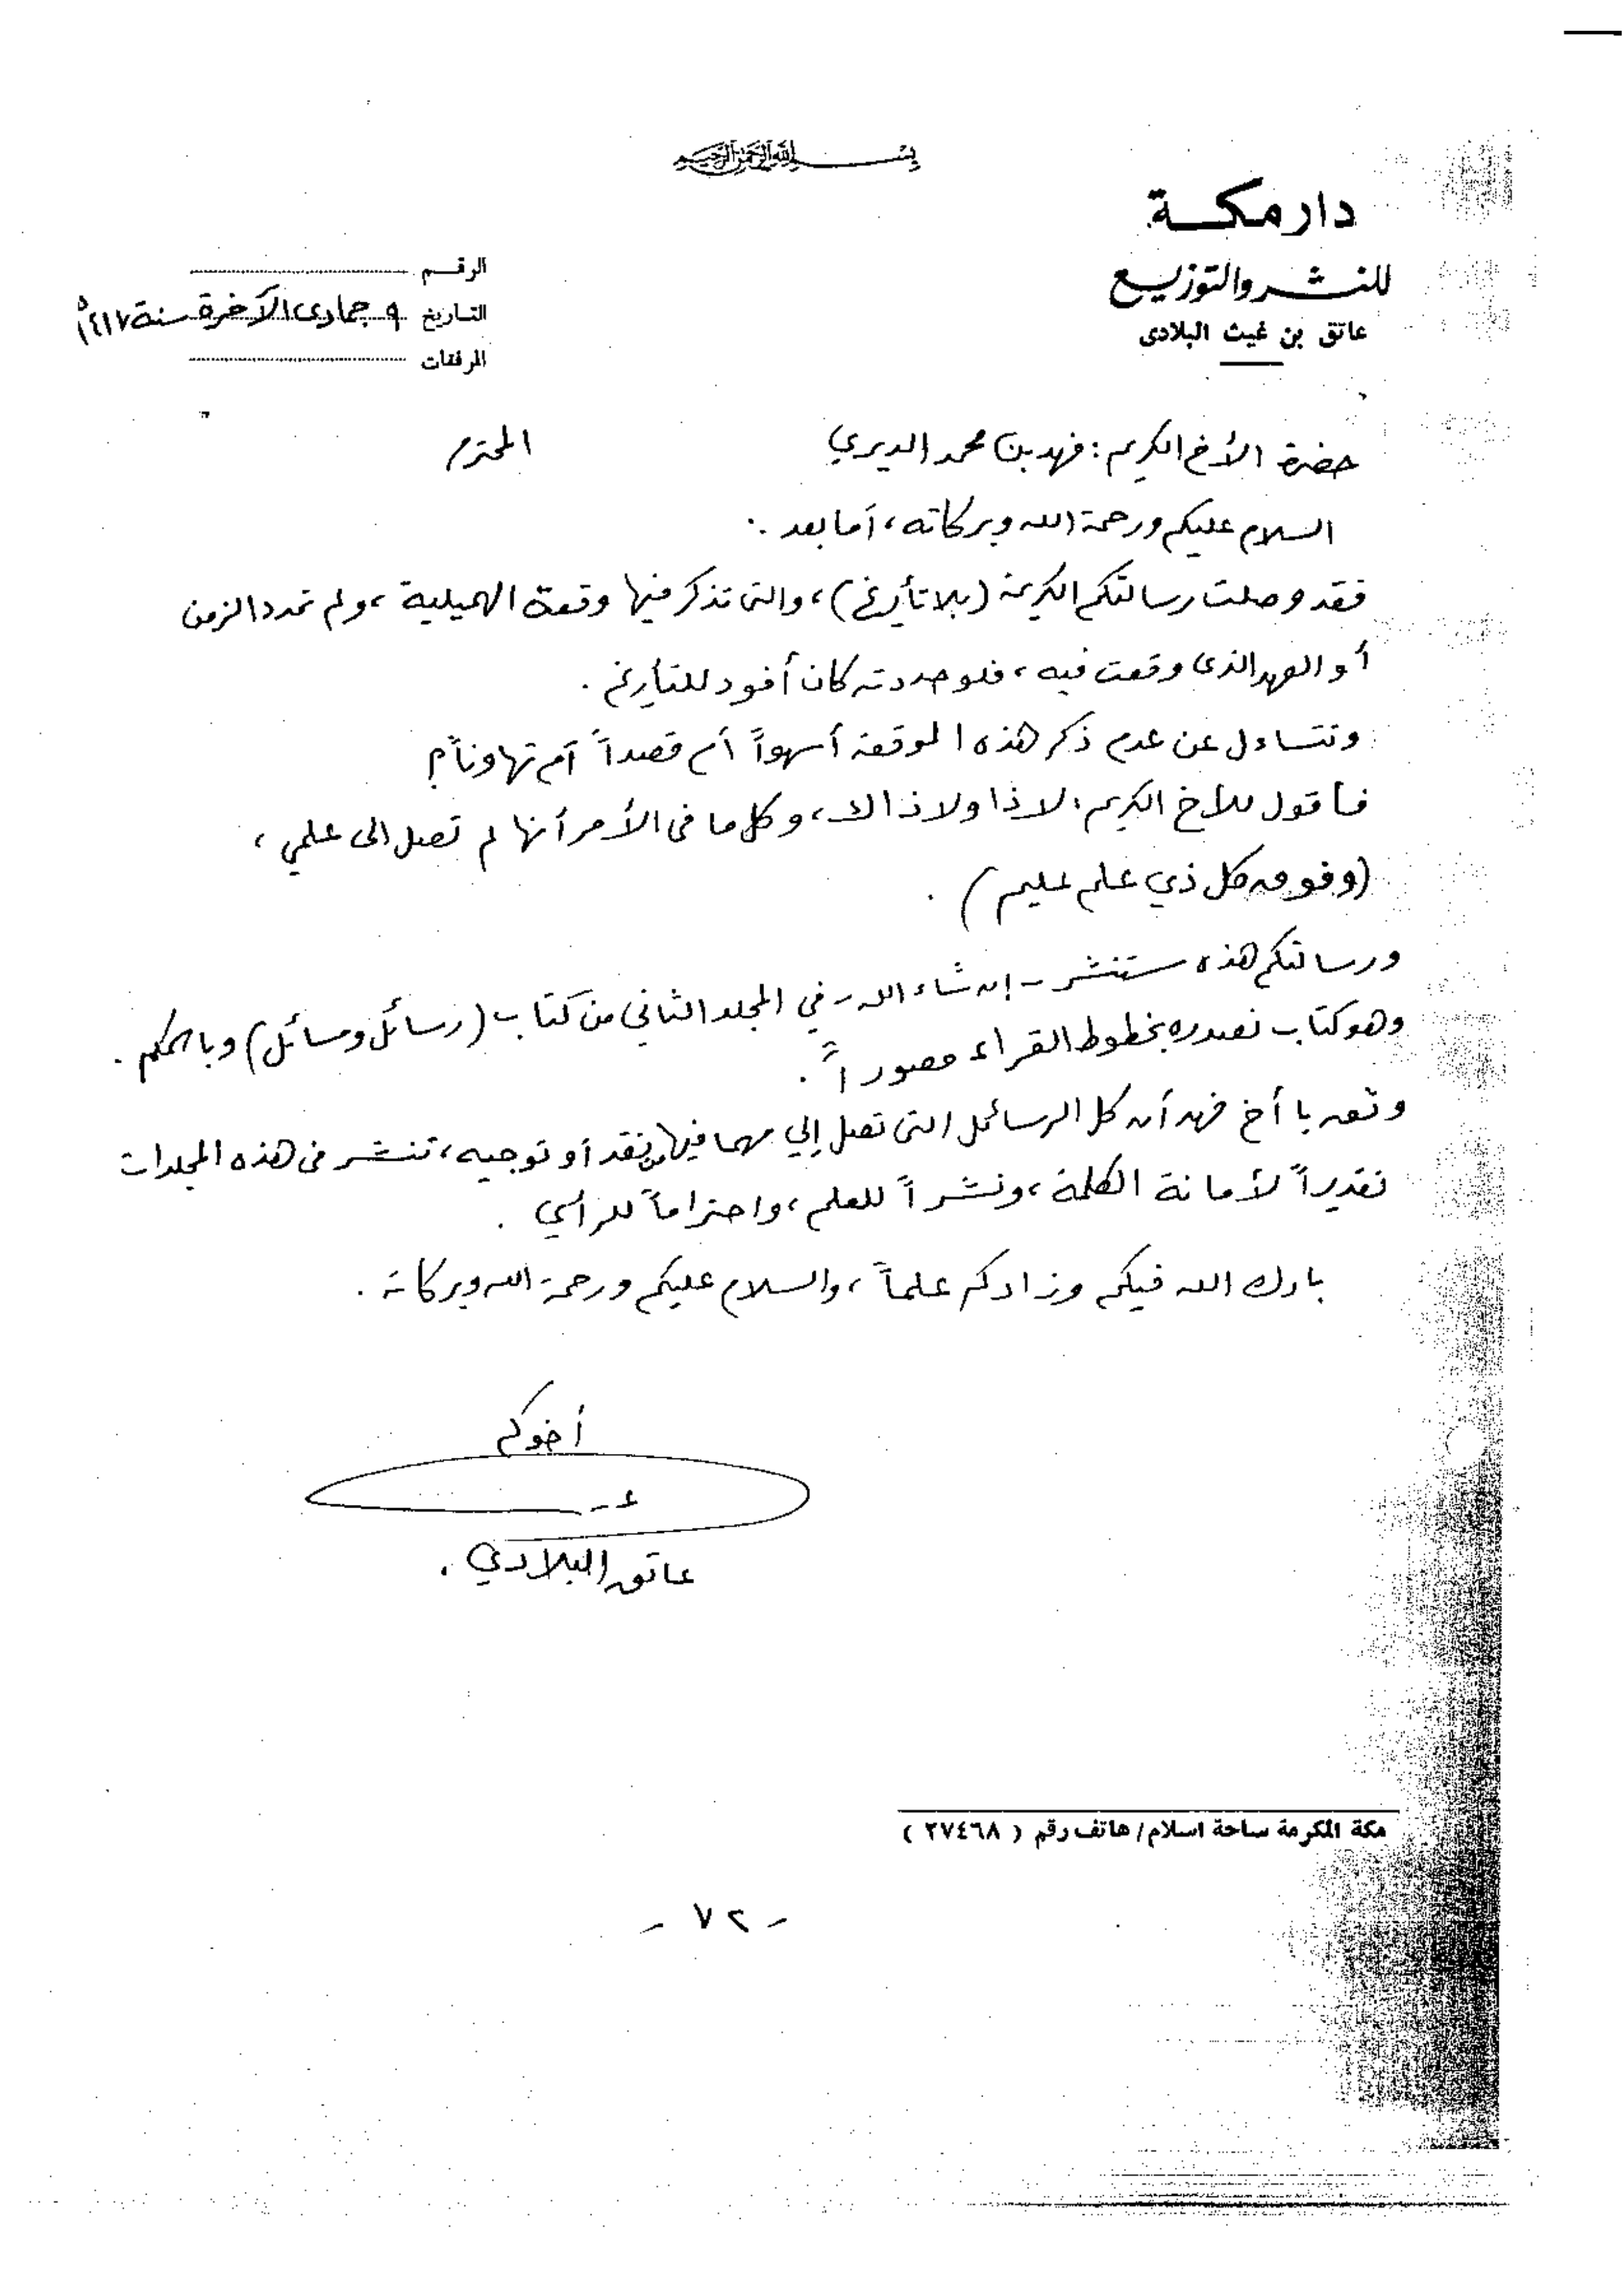 بسم الله الرحمن الرحيم
دار مكة
للنشر والتوزيع
عاتق بن غيث البلادى
الرقم
التاريخ ٩ جمادى الآخرة سنة ١٤١٧ه
المرفقات
حضرة الأخ الكريم: فهد بن محمد الديري المحترم
السلام عليكم ورحمة الله وبركاته، أما بعد :
فقد وصلت رسالتكم الكريمة (بلا تأريخ)، والتى تذكر فيها وقعة الهميلية، ولم تحدد الزمن
أو العهد الذى وقعت فيه، فلو حددته كان أفود للتأريخ .
وتتساءل عن عدم ذكر هذه الموقعة أسهواً أم قصداً أم تهاوناً؟
فأقول للأخ الكريم: لا ذا ولا ذاك، وكل ما فى الأمر أنها لم تصل الى علمي،
(وفوق كل ذي علم عليم) .
ورسالتكم هذه ستنشر - إن شاء الله - في المجلد الثاني من كتاب (رسائل ومسائل) وبالحكم .
وهو كتاب نصدره بخطوط القراء مصوراً .
وثق يا أخ فهد أن كل الرسائل التى تصل إلي مهما فيها من نقد أو توجيه، تنشر فى هذه المجلدات
تقديراً لأمانة الكلمة، ونشراً للعلم، واحتراماً للرأي .
بارك الله فيكم وزادكم علماً، والسلام عليكم ورحمة الله وبركاته .
أخوكم
عاتق البلادي .
مكة المكرمة ساحة اسلام / هاتف رقم ( ٢٧٤٦٨ )
- ٧٢ -